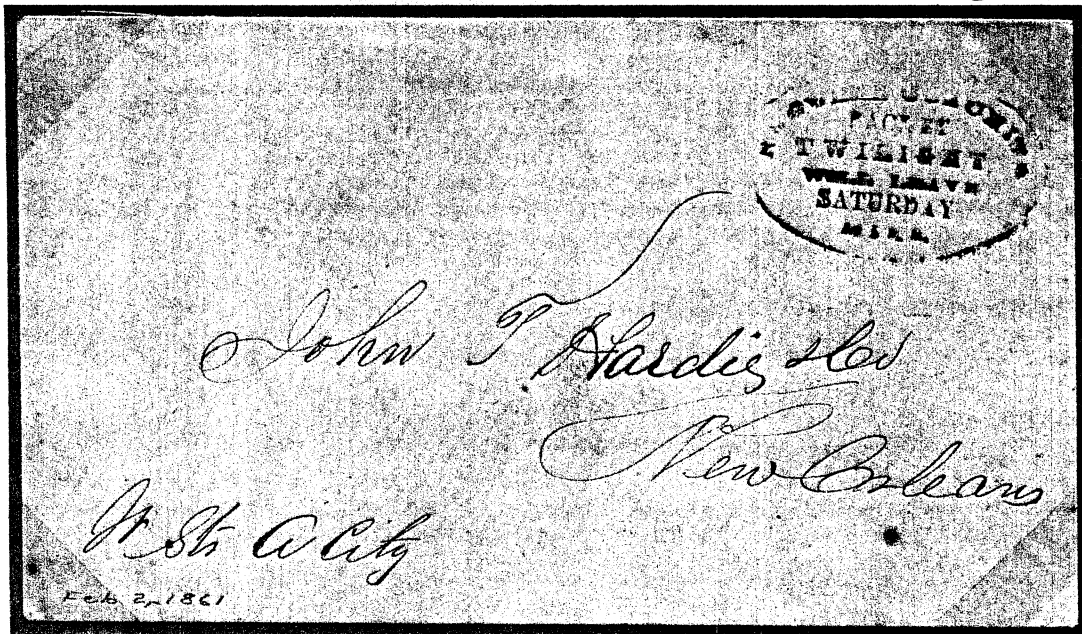 PACKET
TWILIGHT
WILL LEAVE
SATURDAY
John T Hardie & Co
New Orleans
Str City
Feb 2, 1861